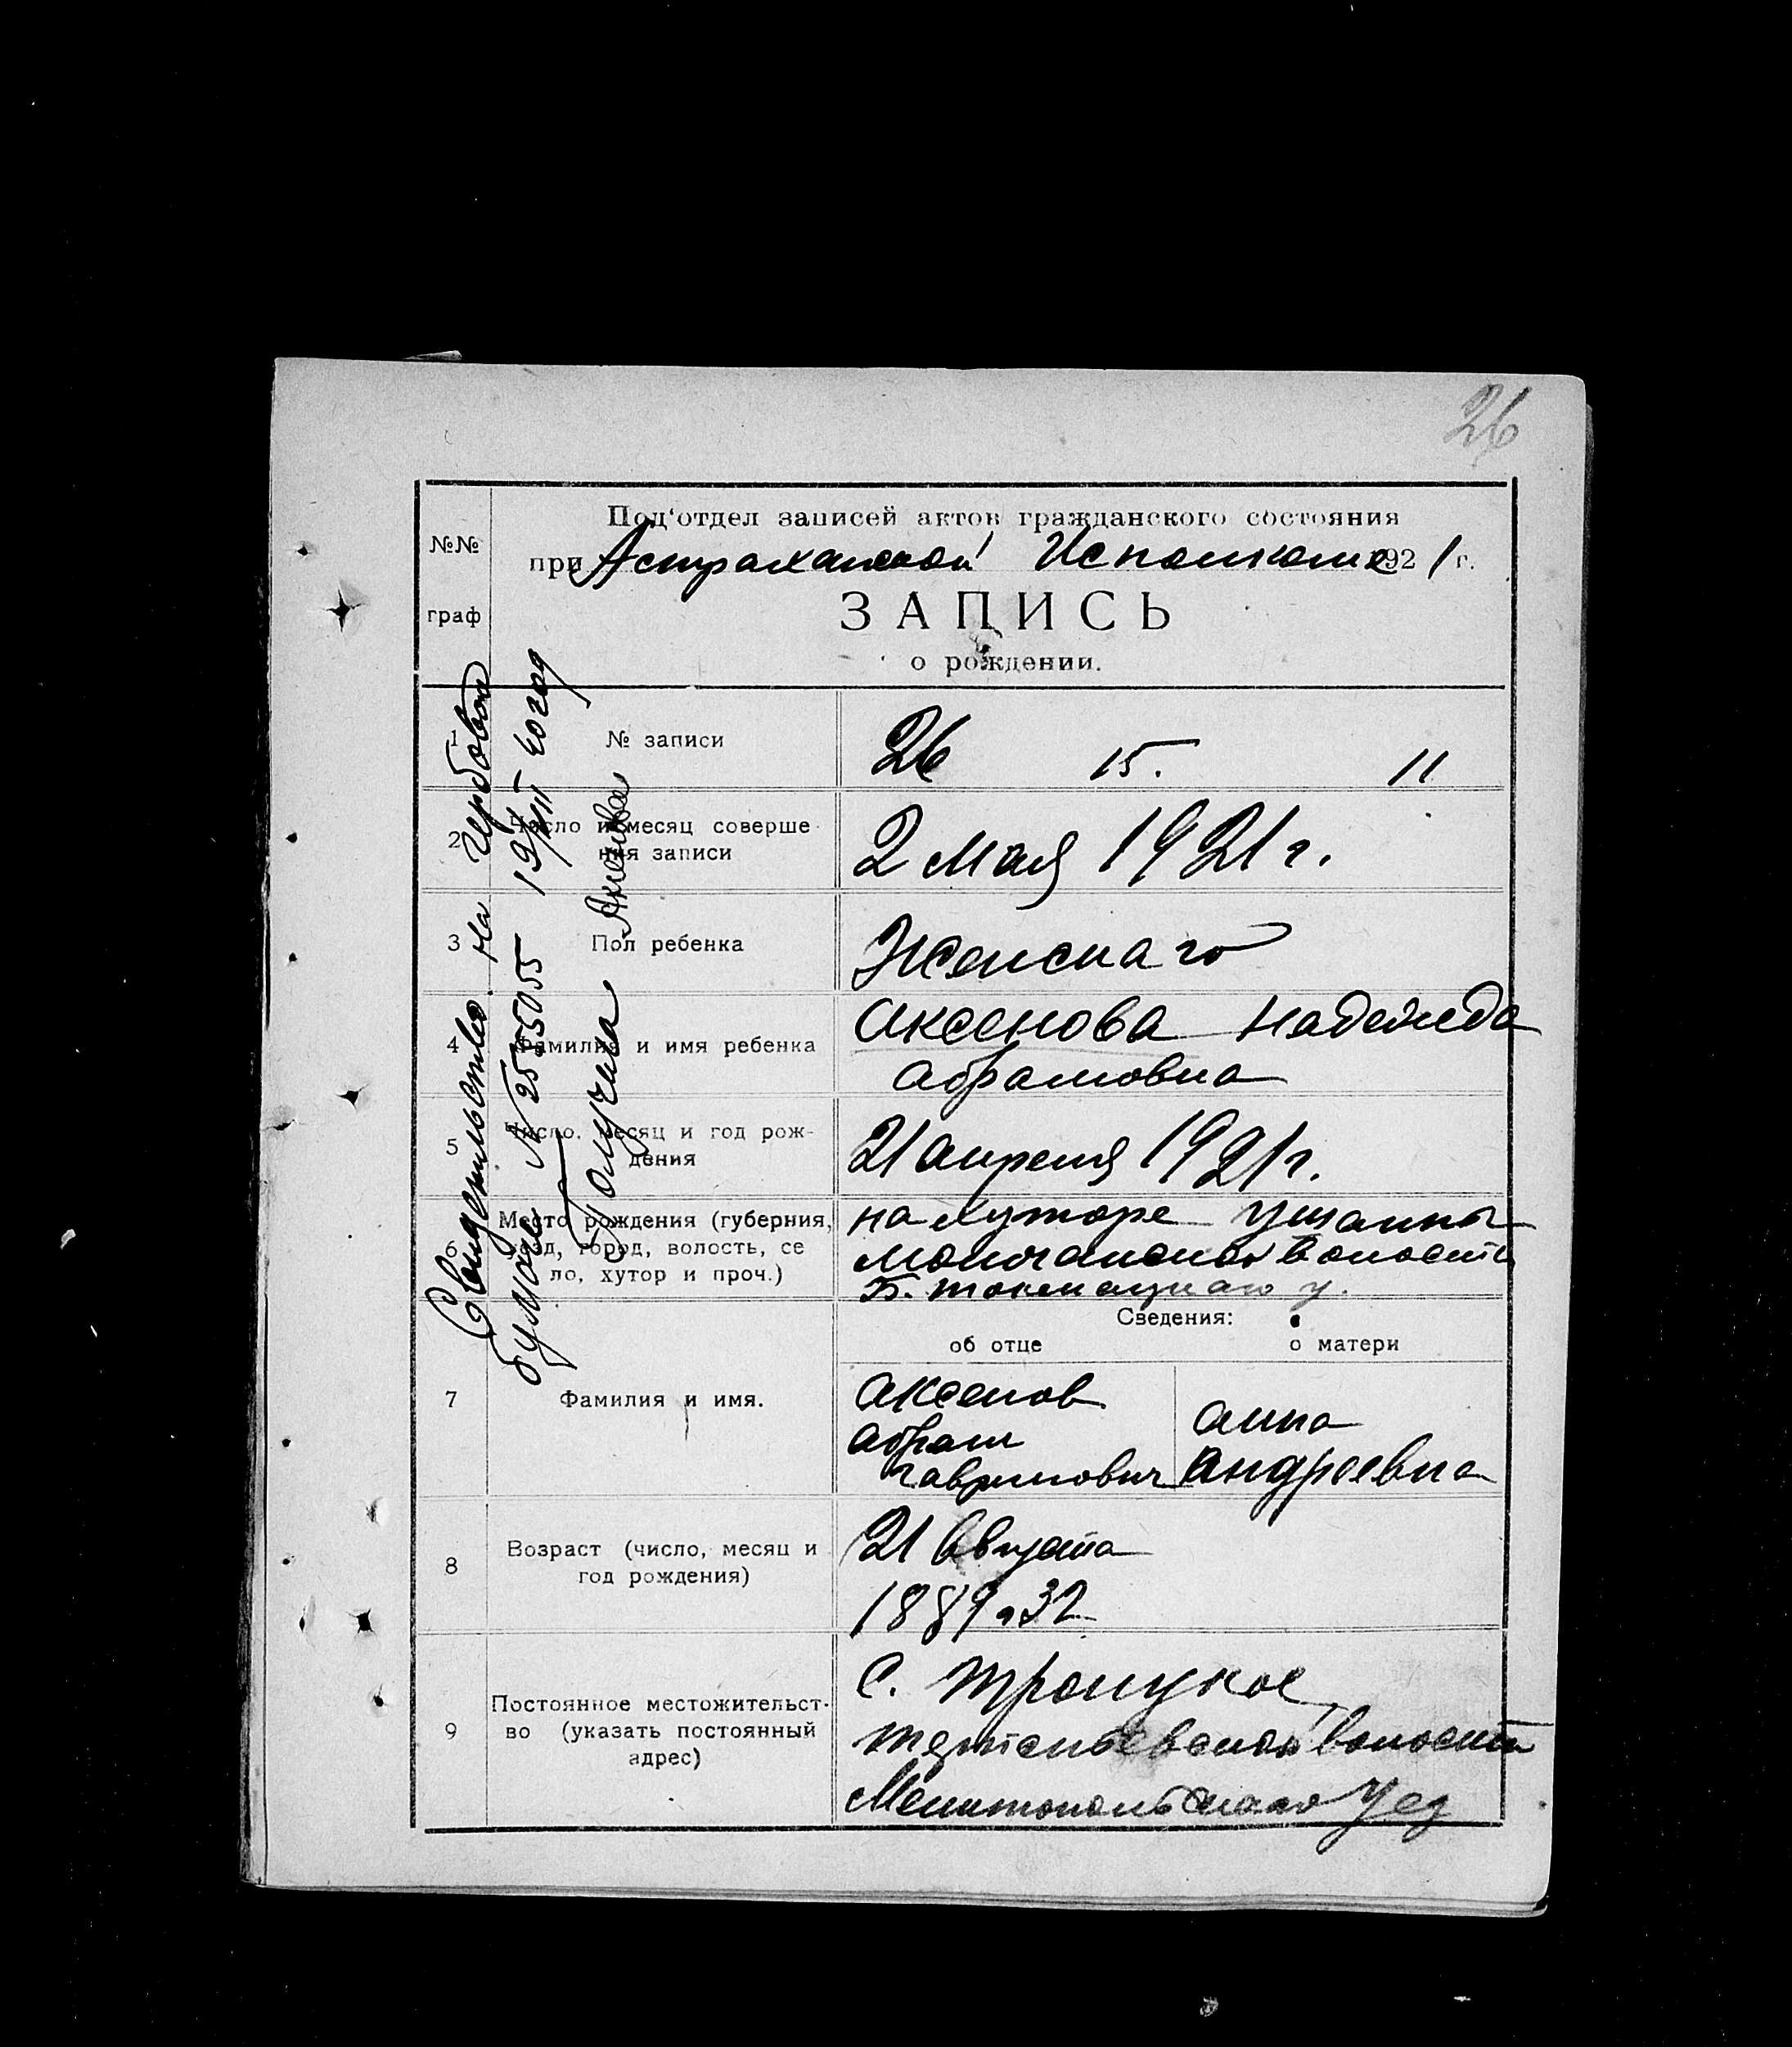 26
№№
граф
Под'отдел записей актов гражданского состояния
при Астраханской Исполкоме 1921 г.
ЗАПИСЬ
о рождении.
1 № записи 26 15. 11
2 Число и месяц соверше
ния записи
2 мая 1921 г.
3 Пол ребенка Женскаго
4 Фамилия и имя ребенка
Аксенова Надежда
Абрамовна
5 Число, месяц и год рож-
дения
21 апреля 1921 г.
6 Место рождения (губерния,
уезд, город, волость, се
ло, хутор и проч.)
на Хуторе
волости
Б. Токмацкаго у.
Сведения:
об отце о матери
7 Фамилия и имя.
Аксенов
Абрам
Гаврилович
Анна
Андреевна
8 Возраст (число, месяц и
год рождения)
21 Августа
1889 г 32
9 Постоянное местожительст-
во (указать постоянный
адрес)
С. Троицкое
волости
Мелитопольскаго Уез
Свидетельство на гербовой
бумаге № 255055 19/VIII 40 года
Получила